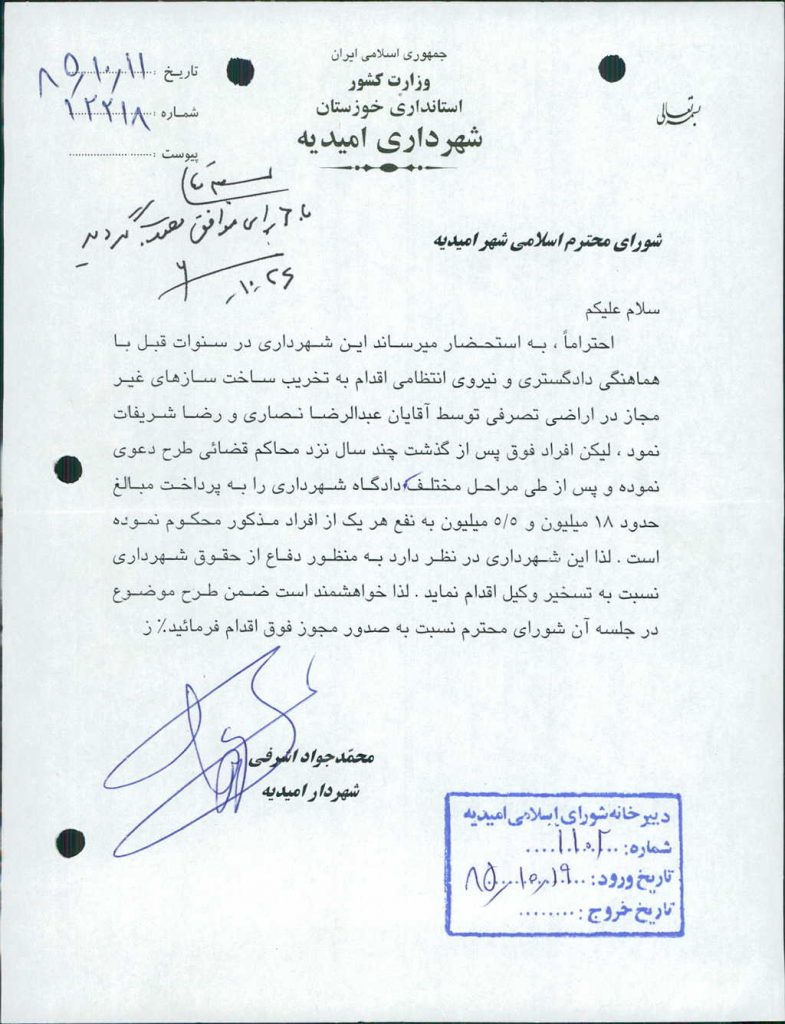 جمهوری اسلامی ایران
وزارت کشور
استانداری خوزستان
شهرداری امیدیه
بسمه تعالی
تاریخ : ۸۵٫۱۰٫۱۱
شماره : ۱۲۲۱۸
پیوست :
با ۶ رای موافق تصویب گردید
۱۰٫۲۶
شورای محترم اسلامی شهر امیدیه
سلام علیکم
احتراماً ، به استحضار میرساند این شهرداری در سنوات قبل با
هماهنگی دادگستری و نیروی انتظامی اقدام به تخریب ساخت سازهای غیر
مجاز در اراضی تصرفی توسط آقایان عبدالرضا نصاری و رضا شریفات
نمود ، لیکن افراد فوق پس از گذشت چند سال نزد محاکم قضائی طرح دعوی
نموده و پس از طی مراحل مختلف دادگاه شهرداری را به پرداخت مبالغ
حدود ۱۸ میلیون و ۵/۵ میلیون به نفع هر یک از افراد مذکور محکوم نموده
است . لذا این شهرداری در نظر دارد به منظور دفاع از حقوق شهرداری
نسبت به تسخیر وکیل اقدام نماید . لذا خواهشمند است ضمن طرح موضوع
در جلسه آن شورای محترم نسبت به صدور مجوز فوق اقدام فرمائید٪ ز
محمّدجواد اشرفی
شهردار امیدیه
دبیرخانه شورای اسلامی امیدیه
شماره: ۱۱۰۲
تاریخ ورود: ۸۵٫۱۰٫۱۹
تاریخ خروج :